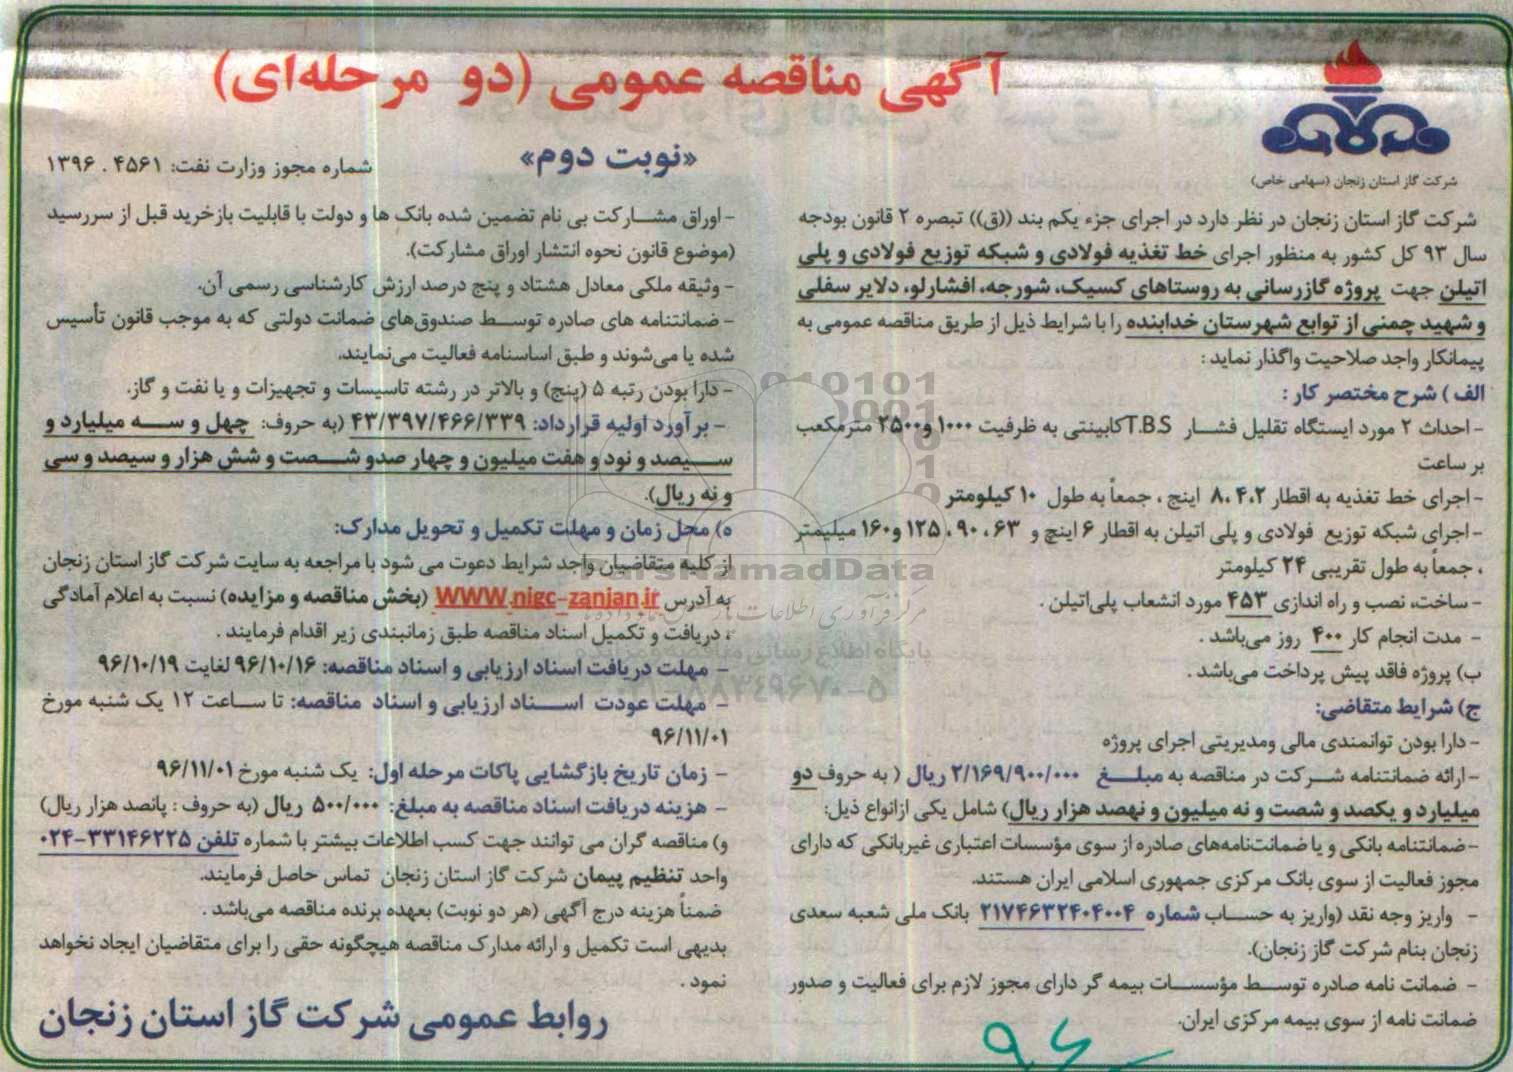 آگهی مناقصه عمومی (دو مرحله‌ای)
«نوبت دوم»
شماره مجوز وزارت نفت: ۴۵۶۱ . ۱۳۹۶
شرکت گاز استان زنجان (سهامی خاص)
شرکت گاز استان زنجان در نظر دارد در اجرای جزء یکم بند ((ق)) تبصره ۲ قانون بودجه
سال ۹۳ کل کشور به منظور اجرای خط تغذیه فولادی و شبکه توزیع فولادی و پلی
اتیلن جهت پروژه گازرسانی به روستاهای کسیک، شورجه، افشارلو، دلایر سفلی
و شهید چمنی از توابع شهرستان خدابنده را با شرایط ذیل از طریق مناقصه عمومی به
پیمانکار واجد صلاحیت واگذار نماید :
الف ) شرح مختصر کار :
- احداث ۲ مورد ایستگاه تقلیل فشار T.B.S کابینتی به ظرفیت ۱۰۰۰ و ۲۵۰۰ مترمکعب
بر ساعت
- اجرای خط تغذیه به اقطار ۲،۴،۸ اینچ ، جمعاً به طول ۱۰ کیلومتر
- اجرای شبکه توزیع فولادی و پلی اتیلن به اقطار ۶ اینچ و ۶۳، ۹۰، ۱۲۵ و ۱۶۰ میلیمتر
، جمعاً به طول تقریبی ۲۴ کیلومتر
- ساخت، نصب و راه اندازی ۴۵۳ مورد انشعاب پلی‌اتیلن .
- مدت انجام کار ۴۰۰ روز می‌باشد .
ب) پروژه فاقد پیش پرداخت می‌باشد .
ج) شرایط متقاضی:
- دارا بودن توانمندی مالی ومدیریتی اجرای پروژه
- ارائه ضمانتنامه شرکت در مناقصه به مبلغ ۲/۱۶۹/۹۰۰/۰۰۰ ریال ( به حروف دو
میلیارد و یکصد و شصت و نه میلیون و نهصد هزار ریال) شامل یکی ازانواع ذیل:
- ضمانتنامه بانکی و یا ضمانت‌نامه‌های صادره از سوی مؤسسات اعتباری غیربانکی که دارای
مجوز فعالیت از سوی بانک مرکزی جمهوری اسلامی ایران هستند.
- واریز وجه نقد (واریز به حساب شماره ۲۱۷۴۶۳۲۴۰۴۰۰۴ بانک ملی شعبه سعدی
زنجان بنام شرکت گاز زنجان).
- ضمانت نامه صادره توسط مؤسسات بیمه گر دارای مجوز لازم برای فعالیت و صدور
ضمانت نامه از سوی بیمه مرکزی ایران.
- اوراق مشارکت بی نام تضمین شده بانک ها و دولت با قابلیت بازخرید قبل از سررسید
(موضوع قانون نحوه انتشار اوراق مشارکت).
- وثیقه ملکی معادل هشتاد و پنج درصد ارزش کارشناسی رسمی آن.
- ضمانتنامه های صادره توسط صندوق‌های ضمانت دولتی که به موجب قانون تأسیس
شده یا می‌شوند و طبق اساسنامه فعالیت می‌نمایند.
- دارا بودن رتبه ۵ (پنج) و بالاتر در رشته تاسیسات و تجهیزات و یا نفت و گاز.
- برآورد اولیه قرارداد: ۴۳/۳۹۷/۴۶۶/۳۳۹ (به حروف: چهل و سه میلیارد و
سیصد و نود و هفت میلیون و چهار صدو شصت و شش هزار و سیصد و سی
و نه ریال).
ه) محل زمان و مهلت تکمیل و تحویل مدارک:
از کلیه متقاضیان واجد شرایط دعوت می شود با مراجعه به سایت شرکت گاز استان زنجان
به آدرس WWW.nigc-zanjan.ir (بخش مناقصه و مزایده) نسبت به اعلام آمادگی
، دریافت و تکمیل اسناد مناقصه طبق زمانبندی زیر اقدام فرمایند .
- مهلت دریافت اسناد ارزیابی و اسناد مناقصه: ۹۶/۱۰/۱۶ لغایت ۹۶/۱۰/۱۹
- مهلت عودت اسناد ارزیابی و اسناد مناقصه: تا ساعت ۱۲ یک شنبه مورخ
۹۶/۱۱/۰۱
- زمان تاریخ بازگشایی پاکات مرحله اول: یک شنبه مورخ ۹۶/۱۱/۰۱
- هزینه دریافت اسناد مناقصه به مبلغ: ۵۰۰/۰۰۰ ریال (به حروف : پانصد هزار ریال)
و) مناقصه گران می توانند جهت کسب اطلاعات بیشتر با شماره تلفن ۳۳۱۴۶۲۲۵-۰۲۴
واحد تنظیم پیمان شرکت گاز استان زنجان تماس حاصل فرمایند.
ضمناً هزینه درج آگهی (هر دو نوبت) بعهده برنده مناقصه می‌باشد .
بدیهی است تکمیل و ارائه مدارک مناقصه هیچگونه حقی را برای متقاضیان ایجاد نخواهد
نمود .
روابط عمومی شرکت گاز استان زنجان
ParsNamadData
پایگاه اطلاع رسانی مناقصه و مزایده
۰۲۱-۸۸۳۴۹۶۷۰-۵